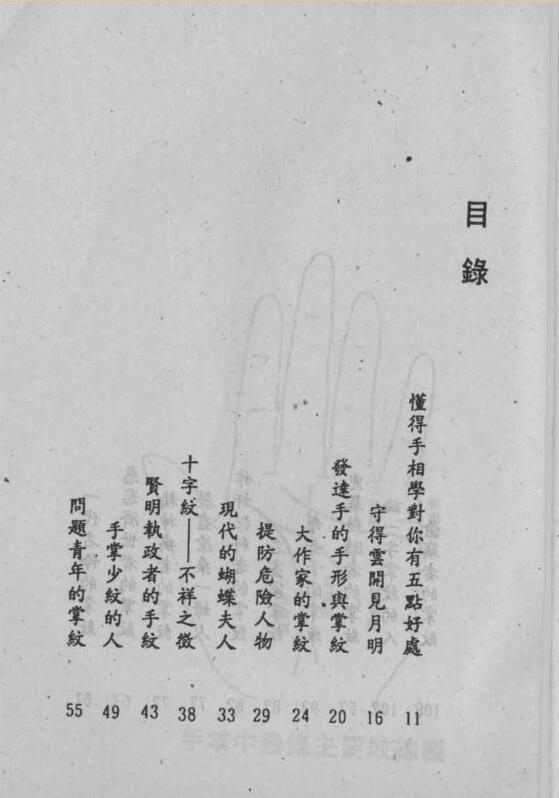 目錄
懂得手相學對你有五點好處 11
守得雲開見月明 16
發達手的手形與掌紋 20
大作家的掌紋 24
提防危險人物 29
現代的蝴蝶夫人 33
十字紋——不祥之徵 38
賢明執政者的手紋 43
手掌少紋的人 49
問題青年的掌紋 55